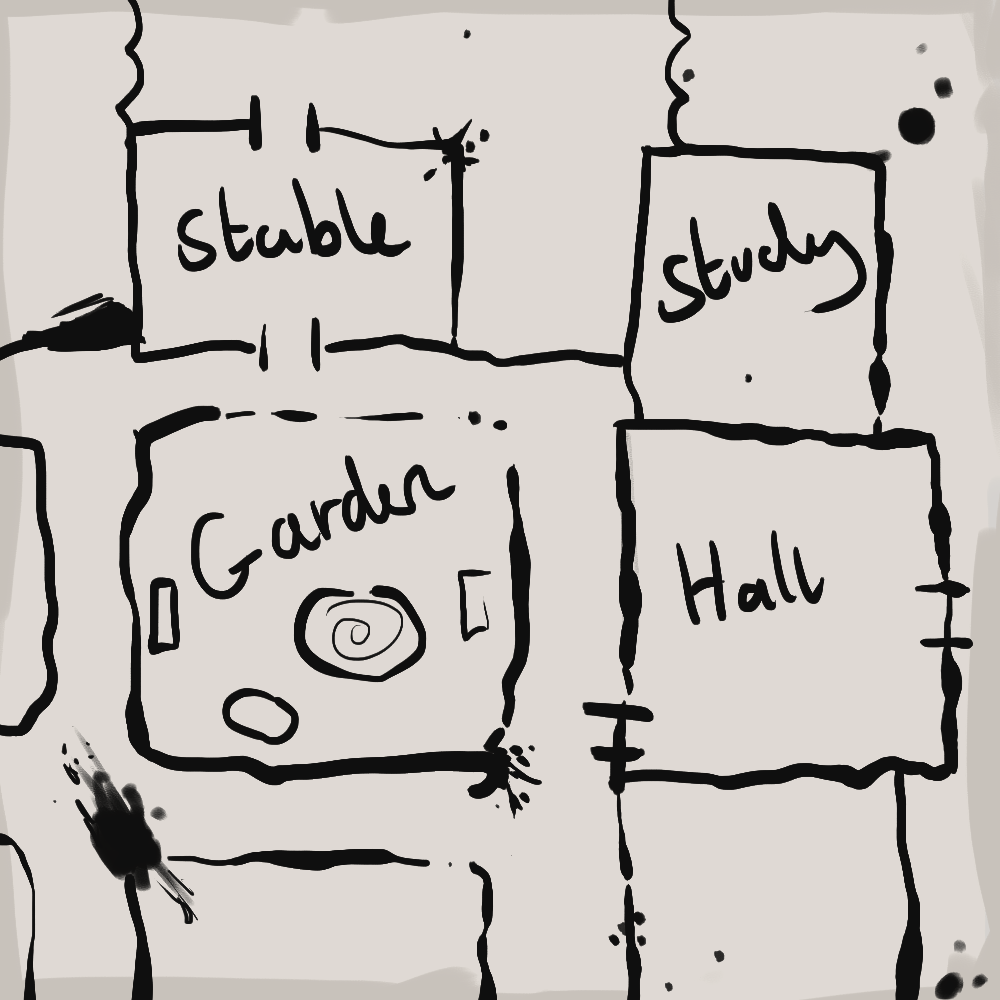 Stable
Study
Garden
Hall